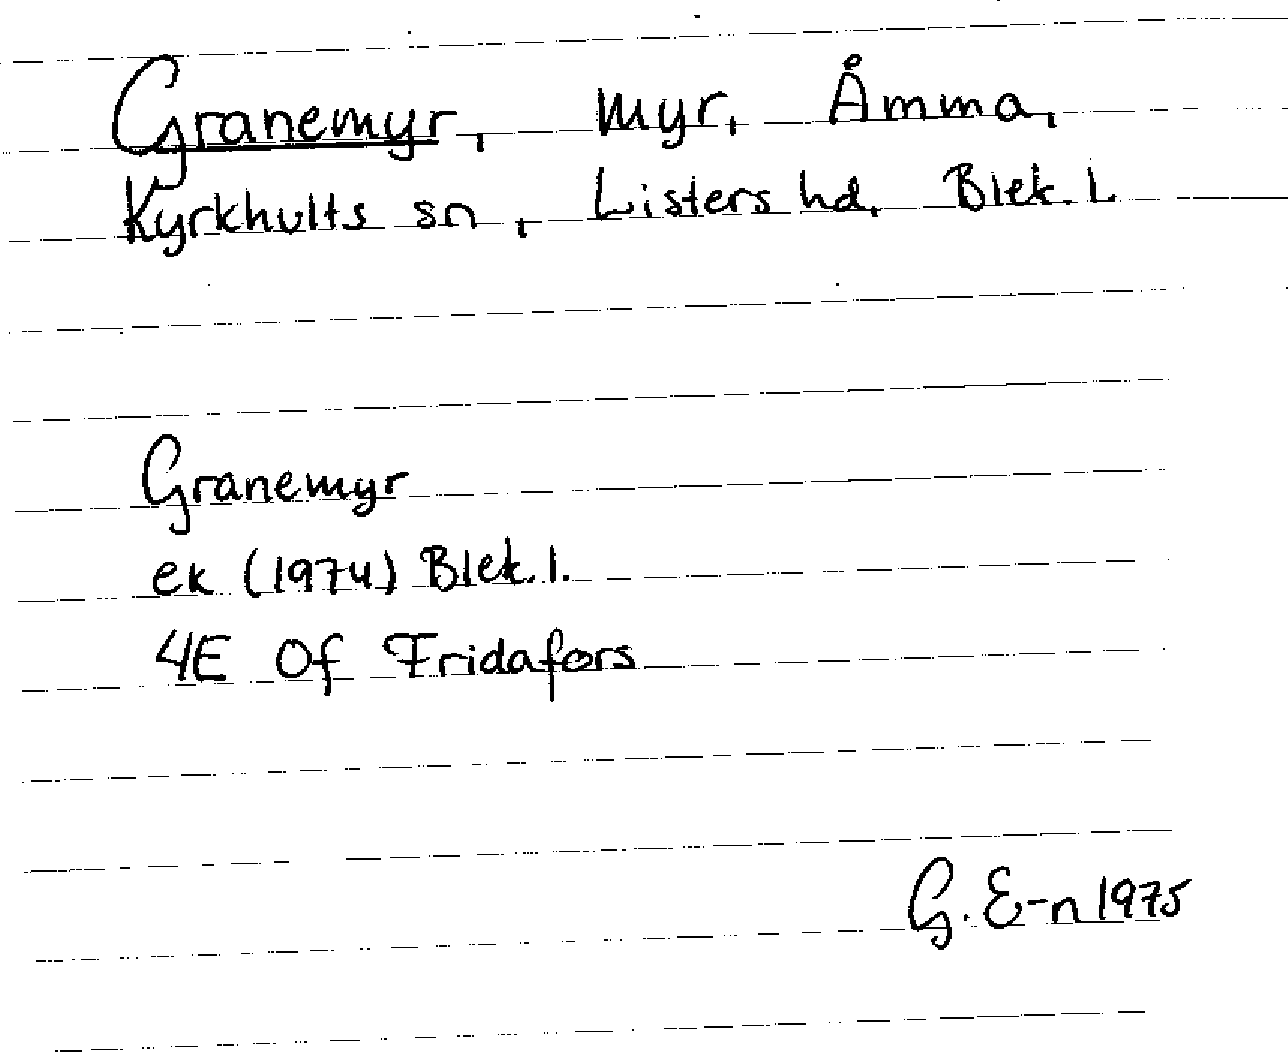 Granemyr, myr, Åmma,
Kyrkhults sn, Listers hd, Blek. l.
Granemyr
ek (1974) Blek. l.
4E 0f Fridafors
G. E-n 1975